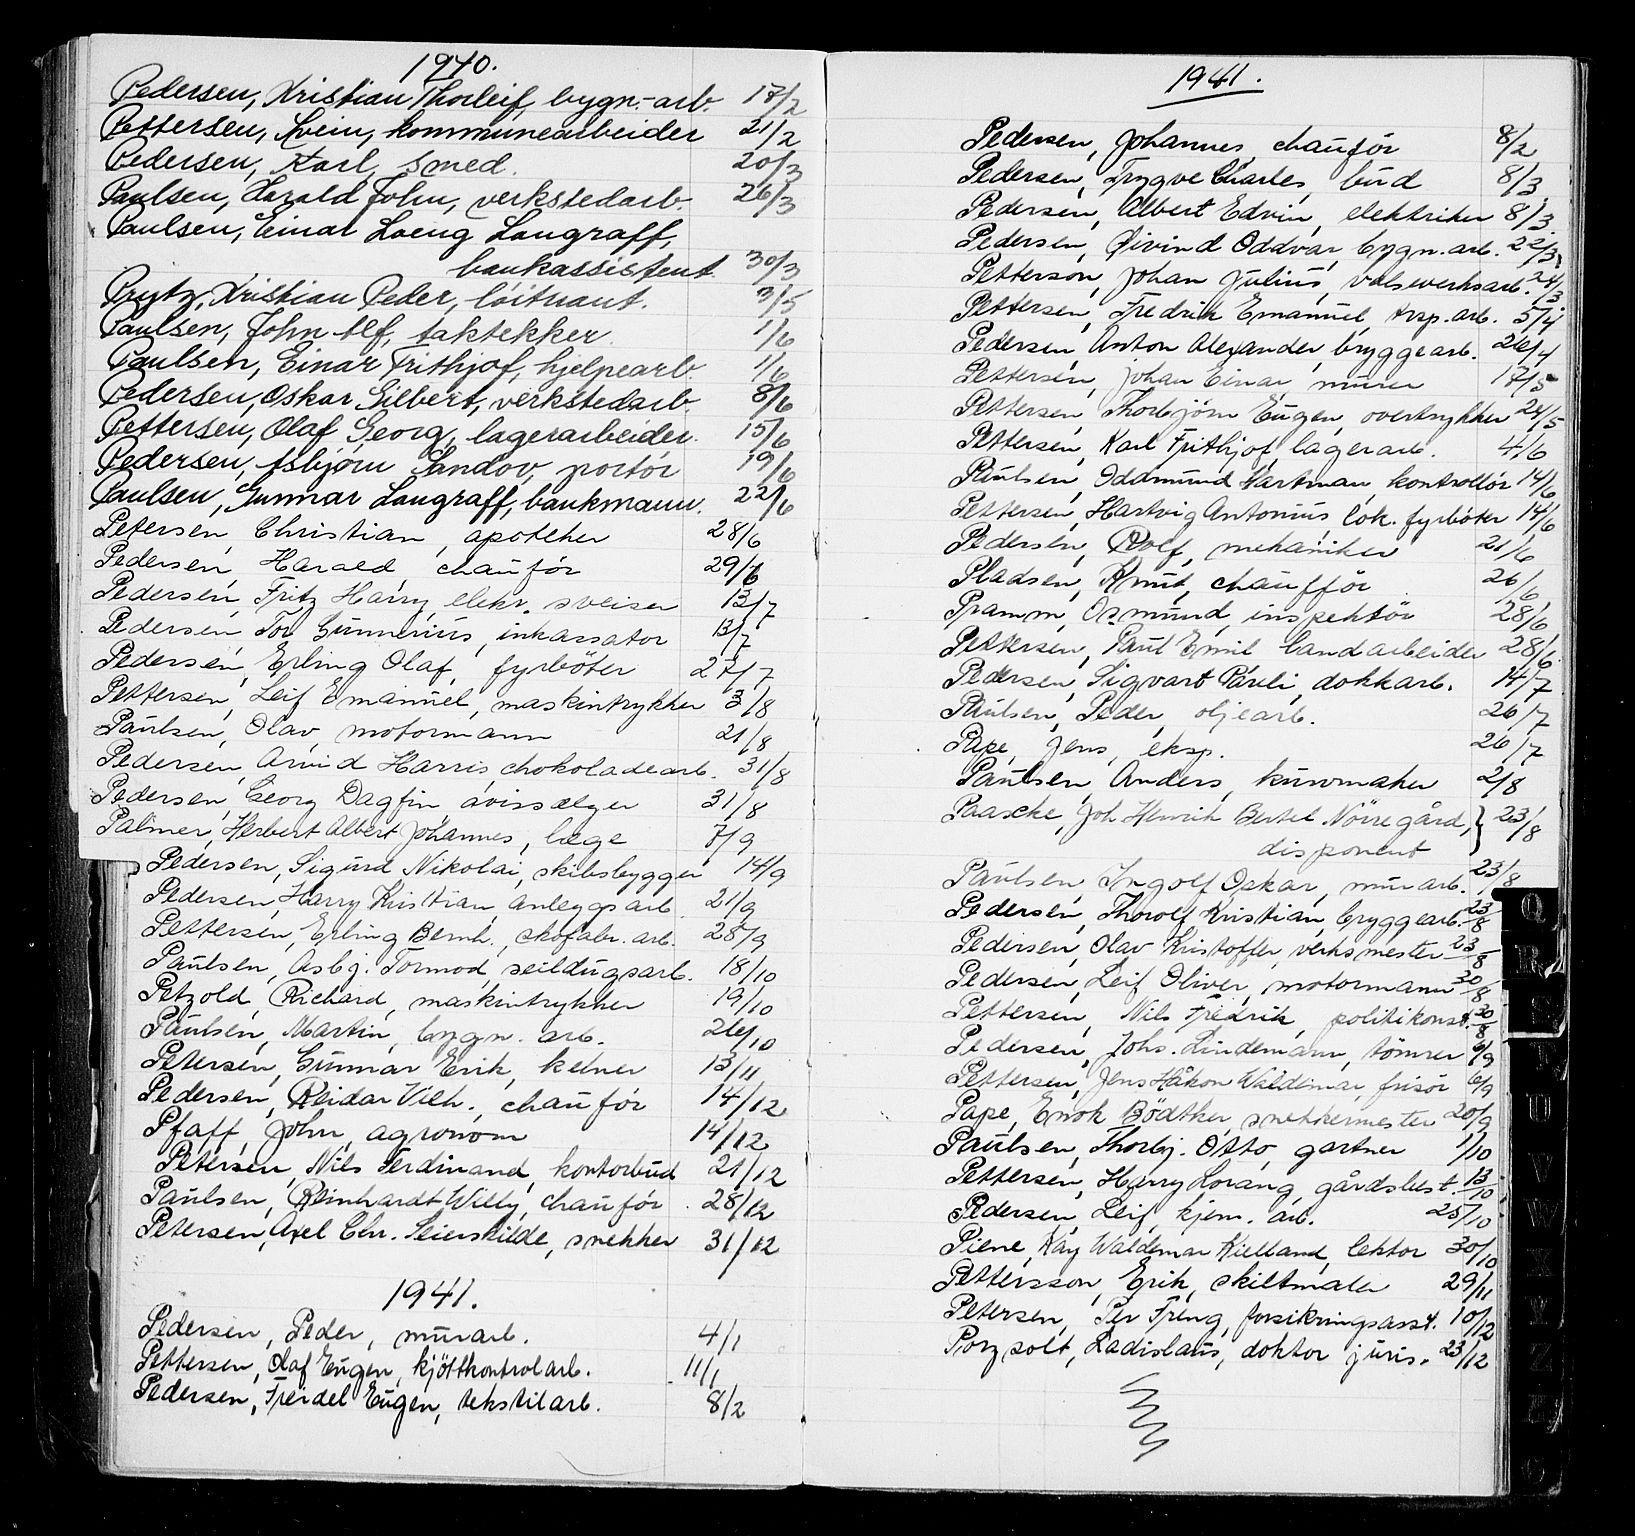 1940.
Pedersen, Kristian Thorleif, bygn.-arb. 17/2
Pettersen, Svein, kommunearbeider 21/2
Pedersen, Karl, smed. 20/3
Paulsen, Harald John, verkstedarb. 26/3
Paulsen, Einar Loeng Langraff,
bankassistent 30/3
Prytz, Kristian Peder, løitnant. 3/5
Paulsen, John Alf, taktekker. 1/6
Paulsen, Einar Frithjof, hjelpearb. 1/6
Pedersen, Oskar Gilbert, verkstedarb. 8/6
Pettersen, Olaf Georg, lagerarbeider. 15/6
Pedersen, Asbjørn Sandov, portør 19/6
Paulsen, Gunnar Langraff, bankmann. 22/6
Petersen, Christian, apoteker 28/6
Pedersen, Harald, chauför 29/6
Pedersen, Fritz Harry, elekr. sveiser 13/7
Pedersen, Tor Gunnerius, inkassator 13/7
Pedersen, Erling Olaf, fyrböter 27/7
Pettersen, Leif Emanuel, maskintrykker 3/8
Paulsen, Olav, motormann 21/8
Pedersen, Arvid Harris, chokoladearb. 31/8
Pedersen, Georg Dagfin, avissælger 31/8
Palmer, Herbert Albert Johannes, læge 7/9
Pedersen, Sigurd Nikolai, skibsbygger 14/9
Pedersen, Harry Kristian, anleggsarb. 21/9
Pettersen, Erling Bernh., skofabr. arb. 28/9
Paulsen, Asbj. Tormod, seildugsarb. 18/10
Petzold, Richard, maskintrykker 19/10
Paulsen, Martin, bygn. arb. 26/10
Petersen, Gunnar Erik, kelner 13/11
Pedersen, Reidar Vilh., chauför 14/12
Pfaff, John, agronom 14/12
Petersen, Nils Ferdinand, kontorbud 21/12
Paulsen, Reinhardt Willy, chauför 28/12
Petersen, Axel Chr. Seierskilde, snekker 31/12
1941.
Pedersen, Peder, murarb. 4/1
Pettersen, Olaf Eugen, kjöttkontrolarb. 11/1
Pedersen, Freidel Eugen, tekstilarb. 8/2
1941.
Pedersen, Johannes, chauför 8/2
Pedersen, Trygve Charles, bud 8/3
Pedersen, Albert Edvin, elektriker 8/3
Pedersen, Øivind Oddvar, bygn. arb. 22/3
Petterson, Johan Julius, valseverksarb. 24/3
Pettersen, Fredrik Emanuel, trsp. arb. 5/4
Pedersen, Anton Alexander, bryggearb. 26/4
Pettersen, Johan Einar, murer 17/5
Pettersen, Thorbjörn Eugen, overtrykker 24/5
Pettersen, Karl Frithjof, lagerarb. 4/6
Paulsen, Oddmund Hartman, kontrollör 14/6
Pettersen, Hartvig Antonius, lok. fyrböter 14/6
Pedersen, Rolf, mekaniker 21/6
Pladsen, Knut, chaufför 26/6
Pramm, Osmund, inspektör 28/6
Pettersen, Paul Emil, landarbeider 28/6
Pedersen, Sigvart Pauli, dokkarb. 14/7
Paulsen, Peder, oljearb. 26/7
Pape, Jens, eksp. 26/7
Paulsen, Anders, kurvmaker 2/8
Paascke, Joh. Henrik Bertel Nörregård, } 23/8
disponent
Paulsen, Ingolf Oskar, murarb. 23/8
Pedersen, Thorolf Kristian, bryggearb. 23/8
Pedersen, Olav Kristoffer, verksmester 23/8
Pedersen, Leif Oliver, motormann 30/8
Pettersen, Nils Fredrik, politikonst. 30/8
Pedersen, Johs. Lindemann, tömrer 6/9
Pettersen, Jens Håkon Waldemar, frisör 6/9
Pape, Enok Bödtker, snekkermester 20/9
Paulsen, Thorbj. Otto, gartner 1/10
Pettersen, Harry Lorang, gårdsbest. 13/10
Pedersen, Leif, kjem. arb. 25/10
Piene, Kay Waldemar Kielland, lektor 30/10
Pettersson, Erik, skiltmaler 29/11
Petersen, Per Freng, forsikringsasst. 10/12
Porzsolt, Ladislaus, doktor juris. 23/12
Q
R
S
T
U
V
W
X
Y
Z